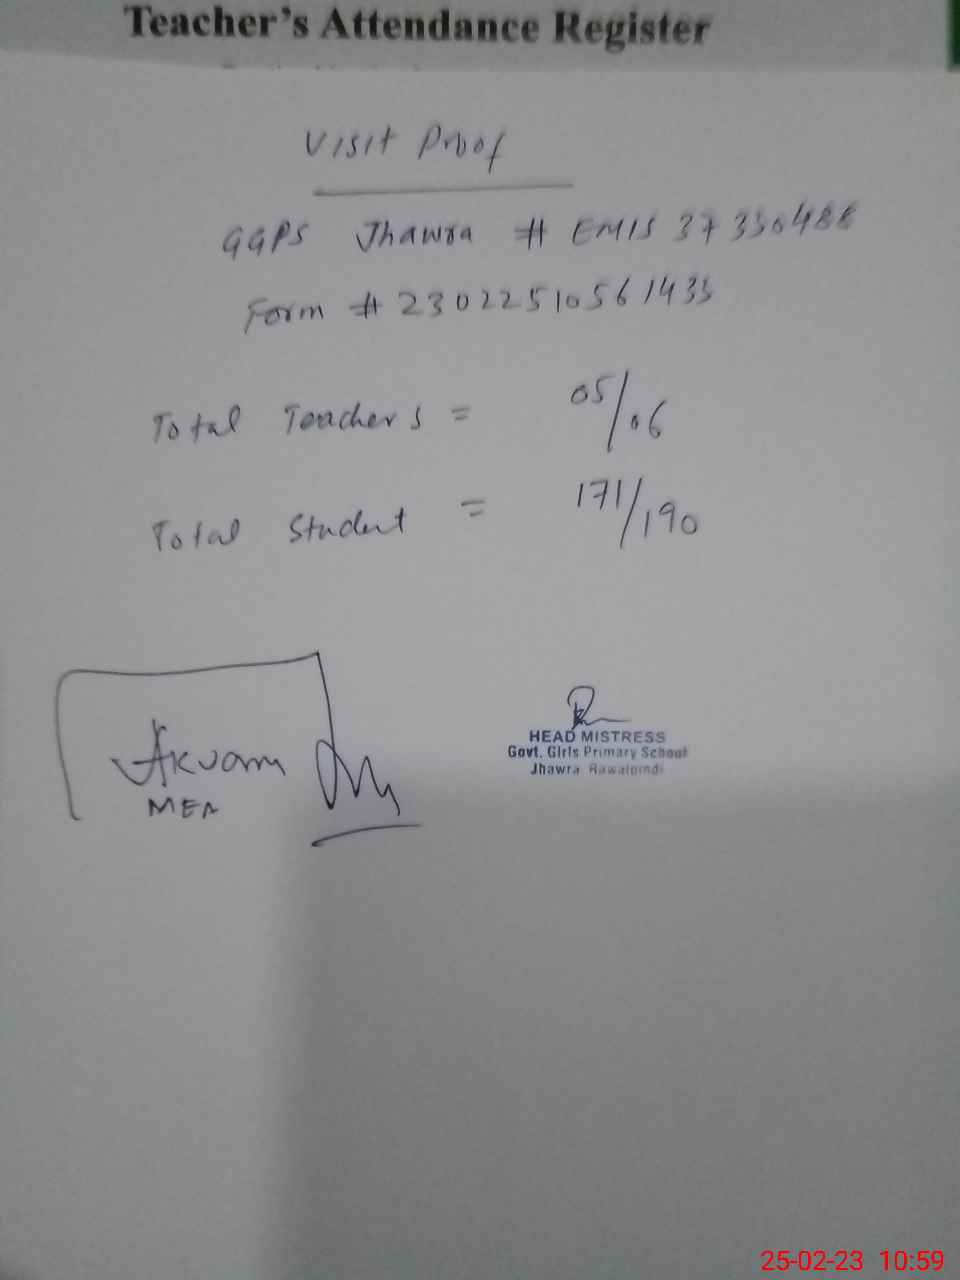 Teacher's Attendance Register
Visit Proof
GGPS Jhawra # EMIS 37330488
Form # 23022510561435
Total Teachers = 05/06
Total Student = 171/190
Akram
MEA
HEAD MISTRESS
Govt. Girls Primary School
Jhawra Rawalpindi
25-02-23 10:59